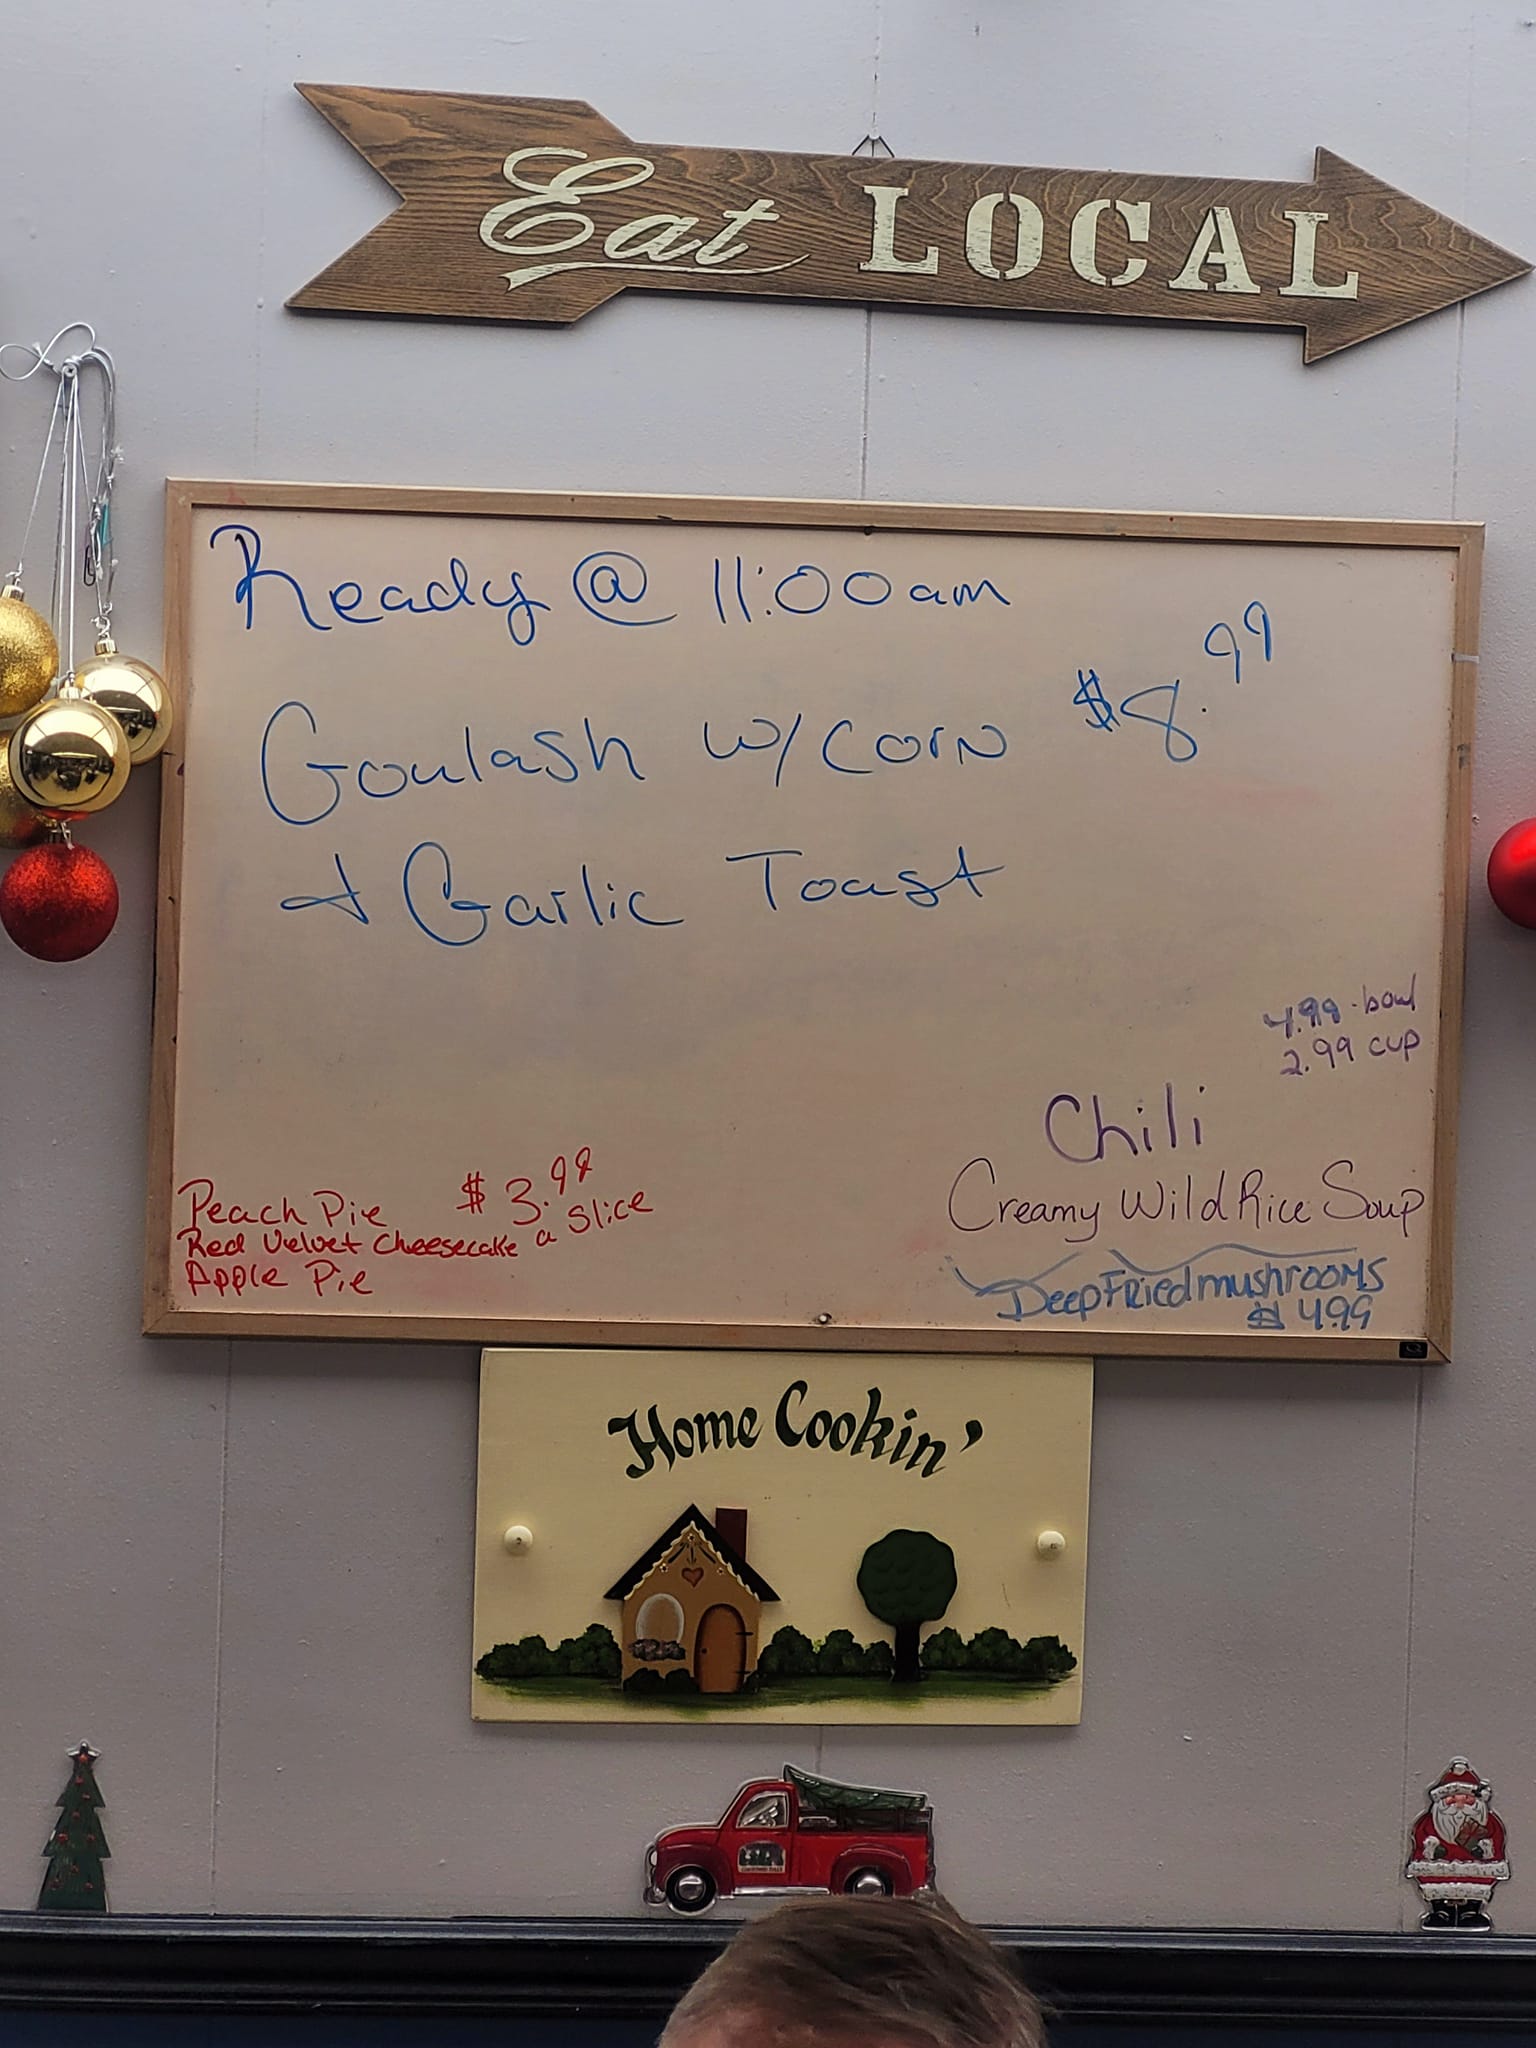 Eat LOCAL
Ready @ 11:00am
Goulash w/ corn $8.99
+ Garlic Toast
4.99 - bowl
2.99 cup
Chili
Creamy Wild Rice Soup
Deep Fried mushrooms
$ 4.99
Peach Pie $3.99
Red Velvet Cheesecake a slice
Apple Pie
Home Cookin'